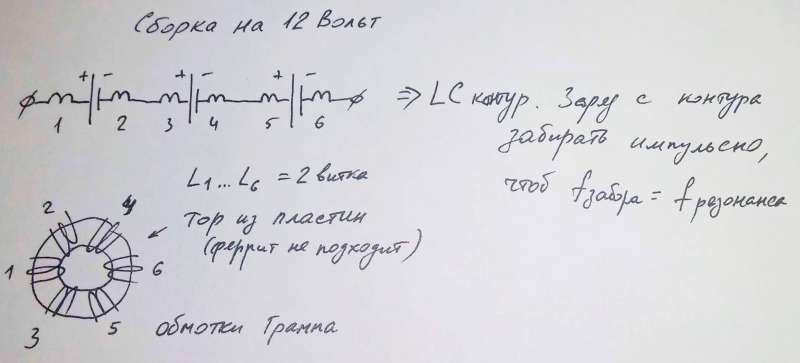 Сборка на 12 Вольт
+ - + - + -
1 2 3 4 5 6
⇒ LC контур. Заряд с контура
забирать импульсно,
чтоб f забора = f резонанса
L1...L6 = 2 витка
тор из пластин
(феррит не подходит)
2 4
1 6
3 5
обмотки Трампа